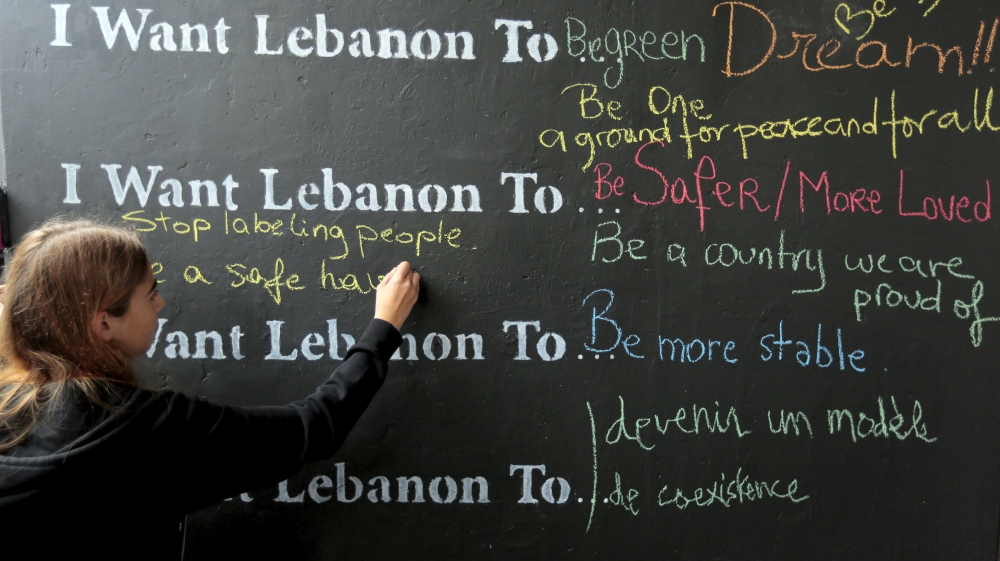 I Want Lebanon To... Be green Dream!!
Be
Be One
a ground for peace and for all
I Want Lebanon To... Be Safer / More Loved
Stop labeling people.
Be a country we are
a safe
proud of
Want Lebanon To... Be more stable.
devenir un modèle
Lebanon To...
de coexistence